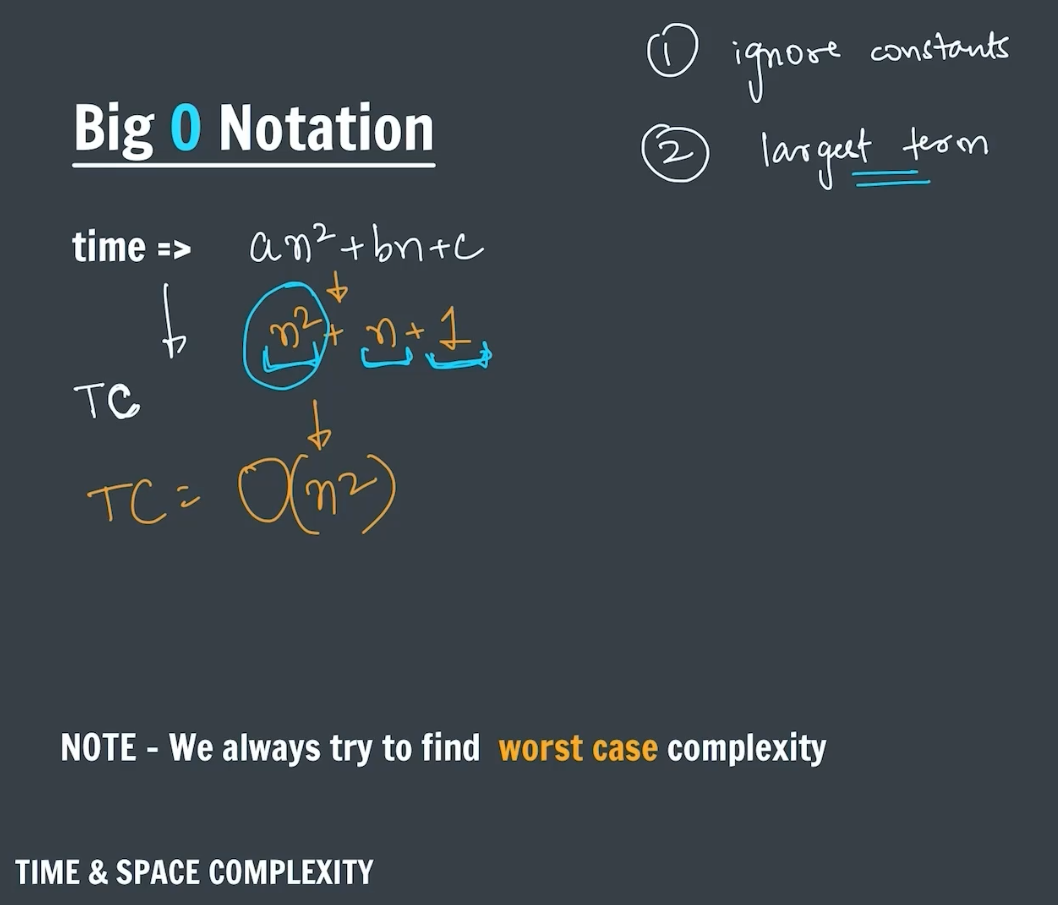 ① ignore constants
Big O Notation
② largest term
time => an²+bn+c
n² + n + 1
TC
TC = O(n²)
NOTE - We always try to find worst case complexity
TIME & SPACE COMPLEXITY